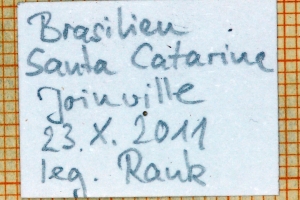 Brasilien
Santa Catarina
Joinville
23.X.2011
leg. Rank